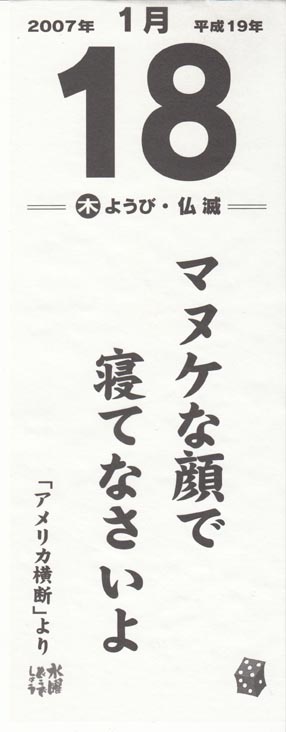 2007年 1月 平成19年
18
木ようび・仏滅
マヌケな顔で
寝てなさいよ
「アメリカ横断」より
水曜
どうでしょう